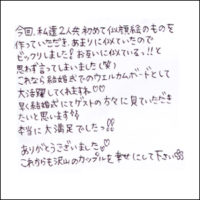 今回、私達2人共初めて似顔絵のものを
作っていただき、あまりに似ていたので
ビックリしました! お互いに似ているっ!!と
思わず言ってしまいました(笑)
これなら結婚式でのウェルカムボードとして
大活躍してくれますね♡♡
早く結婚式にてゲストの方々に見ていただき
たいと思います
本当に大満足でしたっ!!
ありがとうございました♡
これからも沢山のカップルを幸せにして下さい